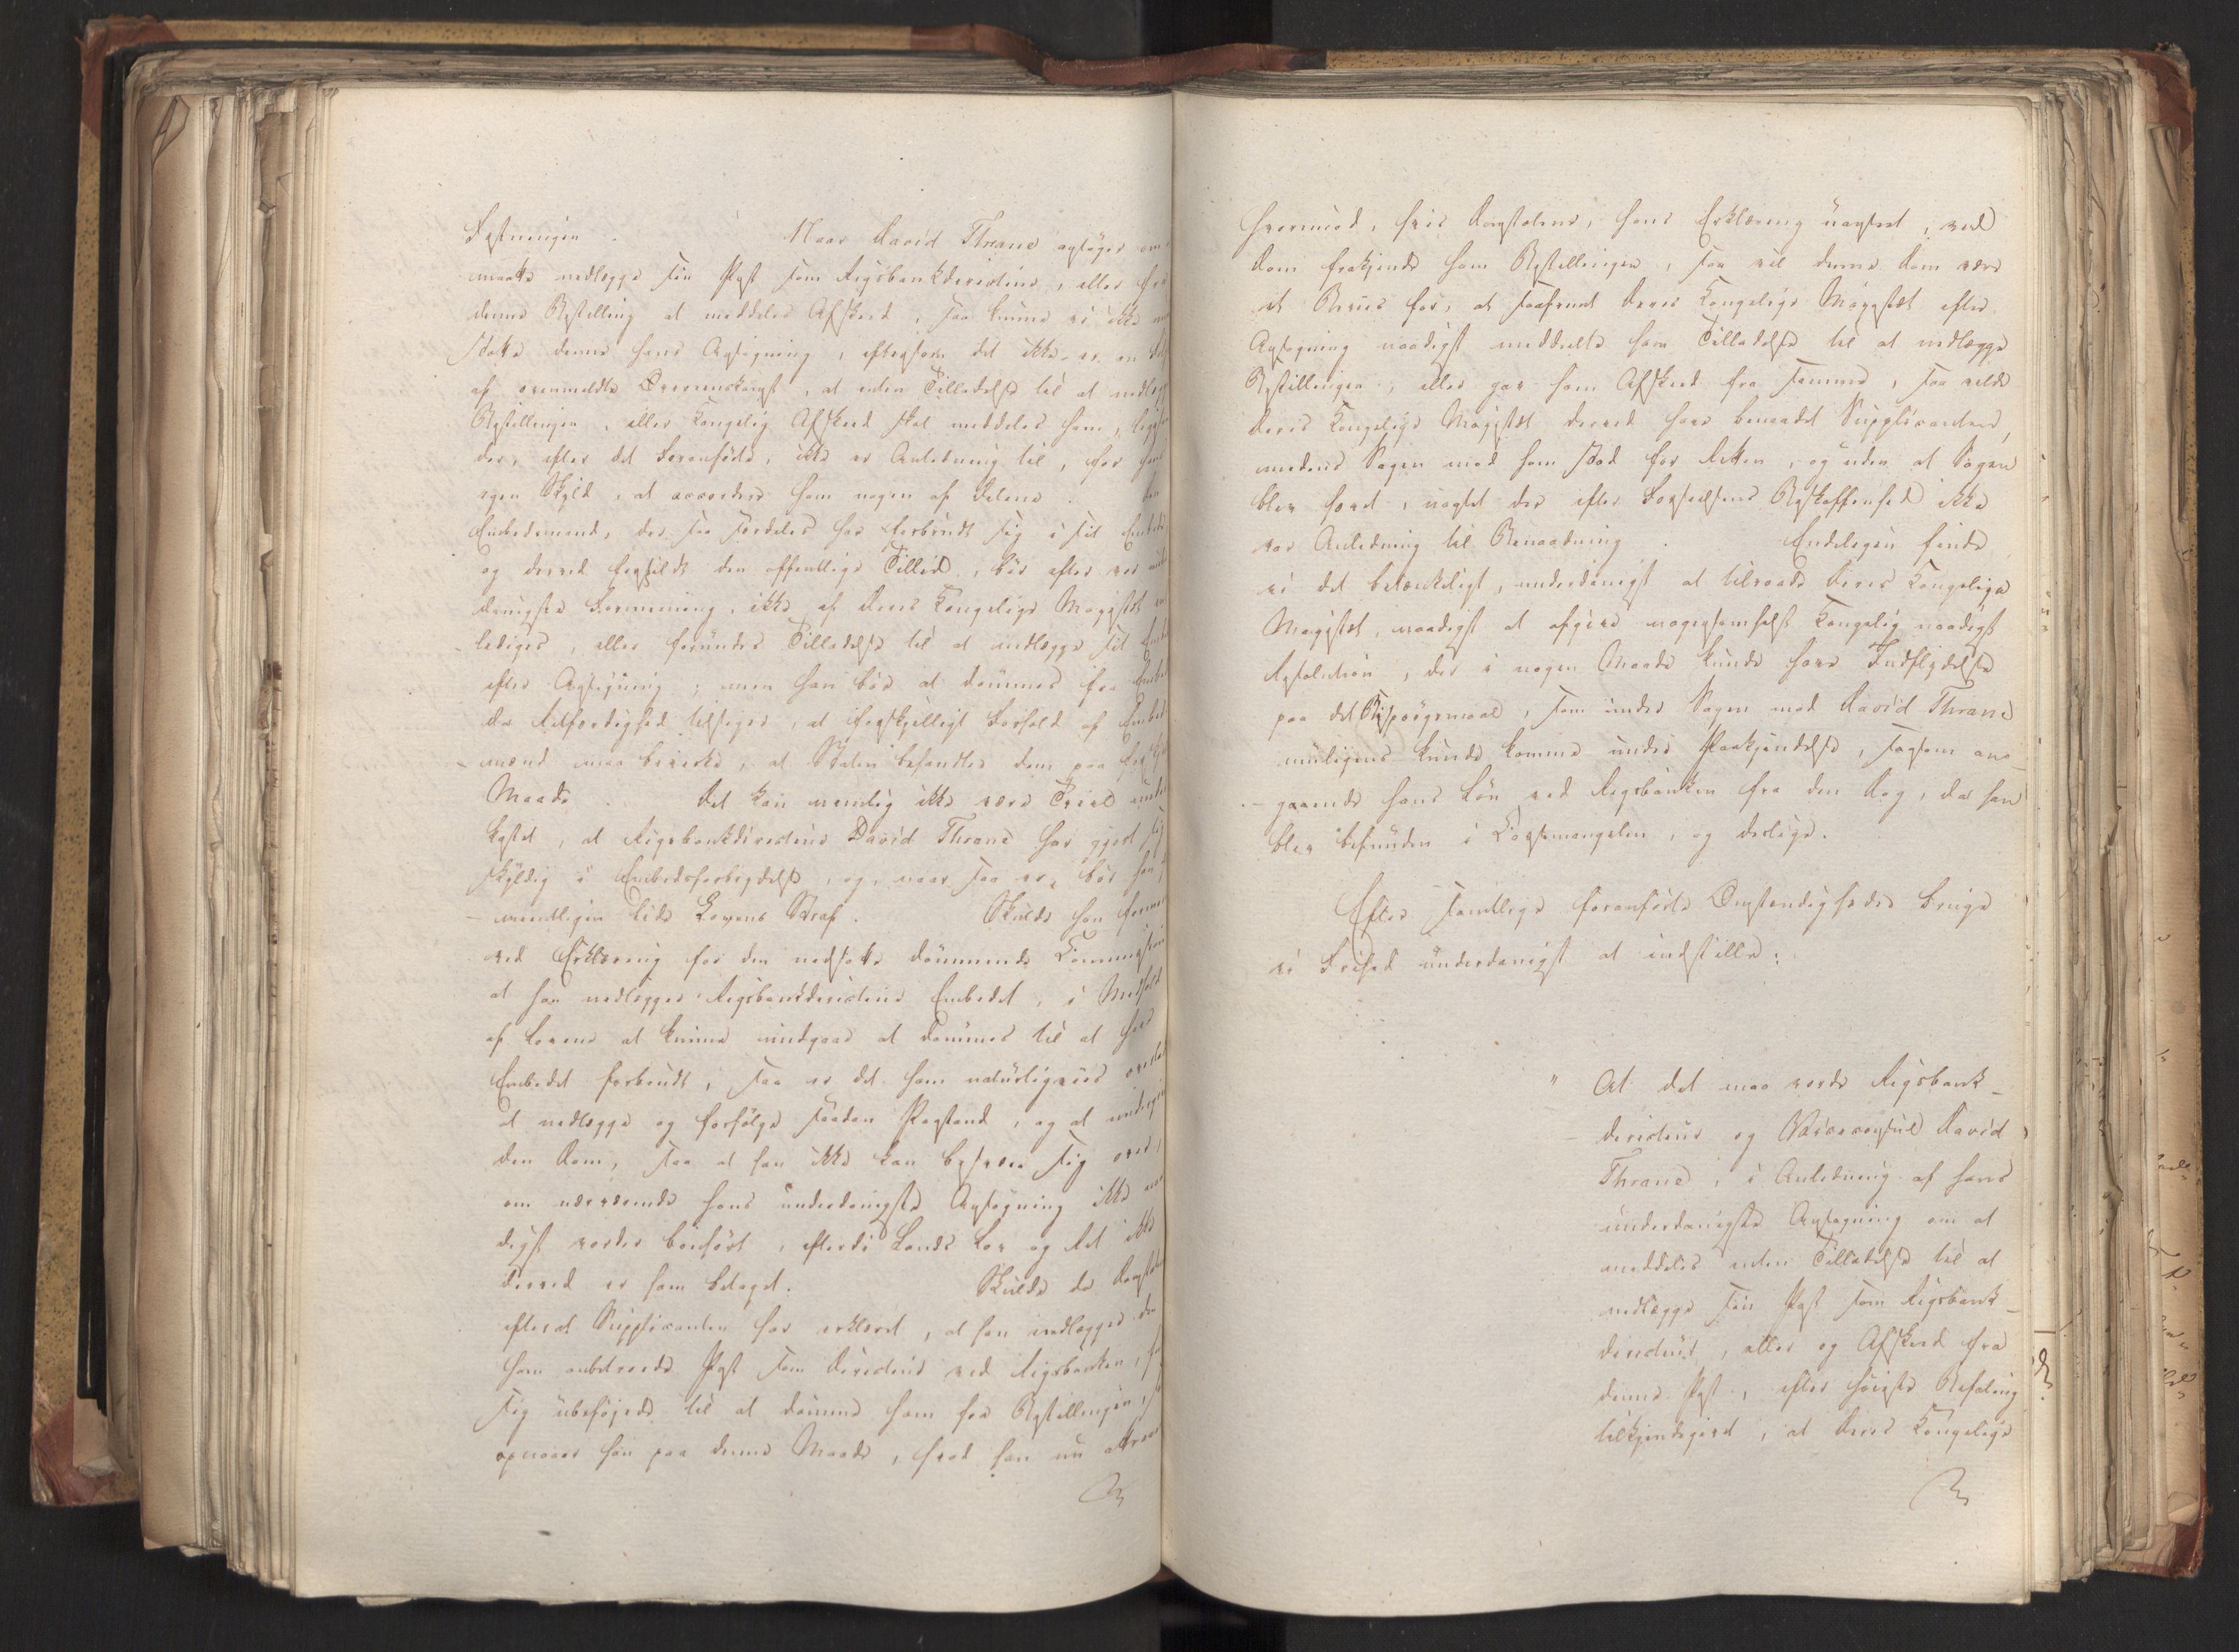 Fæstningen. Naar David Thrane ansøger om
maatte nedlægge sin Post som Rigsbankdirecteur, eller fra
denne Bestilling at meddeles Afskeed, saa kunne vi ikke
støtte denne hans Ansøgning, eftersom det ikke er en
af ovenmeldte Overeenskomst, at uden Tilladelse til at nedlægge
Bestillingen, eller Kongelig Afskeed skal meddeles ham,
der, efter det Foranførte, ikke er Anledning til, for hans
egen Skyld, at accordere ham nogen af Delene. Den
Embedsmand, der saa særdeles har forbrudt sig i sit Embede
og derved forspildt den offentlige Tillid, bør efter vor under
danigste Formening, ikke af Deres Kongelige Majestæt
lediges, eller forundes Tilladelse til at nedlægge sit Embede
efter Ansøgning; men han bør at dømmes fra Embedet
da Retfærdighed tilsiger, at forskjelligt Forhold af Embeds
mænd maa bevirke, at Staten behandler dem paa
Maade. Det kan nemlig ikke være Tvivl under
kastet, at Rigsbankdirecteur David Thrane har gjort sig
skyldig i Embedsforbrydelse, og, naar saa er, bør han
nemligen lide Lovens Straf. Skulde han formene
ved Erklæring for den nedsatte dømmende Commission
at han nedlægger Rigsbankdirecteur Embedet, i Medhold
af Lovene at kunne undgaae at dømmes til at have
Embedet forbrudt, saa er det ham naturligviis
at nedlægge og forfølge saadan Paastand, og at
den Dom, saa at han ikke kan besvære sig over,
om nærværende hans underdanigste Ansøgning ikke naa
digst vorder bønhørt, efterdi Lands Lov og Ret ikke
derved er ham betaget. Skulde da Domstolen
efterat Supplicanten har erklæret, at han nedlægger den
ham anbetroede Post som Directeur ved Rigsbanken,
sig ubeføjede til at dømme ham fra Bestillingen,
opnaaer han paa denne Maade, hvad han nu attraaer
hvorimod, hvis Domstolene, hans Erklæring uagtet, ved
Dom frakjende ham Bestillingen, saa vil denne Dom være
et Beviis for, at saafremt Deres Kongelige Majestæt efter
Ansøgning naadigst meddeelte ham Tilladelse til at nedlægge
Bestillingen, eller gav ham Afskeed fra samme, saa vilde
Deres Kongelige Majestæt derved have benaadet Supplicanten,
medens Sagen mod ham stod for Retten, og uden at Sagen
blev ført, uagtet der efter Forseelsens Beskaffenhed ikke
var Anledning til Benaadning. Endeligen finde
vi det betænkeligt, underdanigst at tilraade Deres Kongelige
Majestæt, naadigst at afgive nogensomhelst Kongelig naadigst
Resolution, der i nogen Maade kunde have Indflydelse
paa det Spørgsmaal, som under Sagen mod David Thrane
muligens kunde komme under Paakjendelse, saasom an-
gaaende hans Løn ved Rigsbanken fra den Dag, da han
blev befunden i Cassemangelen, og deslige.
Efter samtlige foranførte Omstændigheder bruge
vi Frihed underdanigst at indstille:
" At det maa vorde Rigsbank-
directeur og Vareconsul David
Thrane, i Anledning af hans
underdanigste Ansøgning om at
meddeles enten Tilladelse til at
nedlægge sin Post som Rigsbank-
directeur, eller og Afskeed fra
denne Post, efter høieste Befaling
tilkjendegivet, at Deres Kongelige